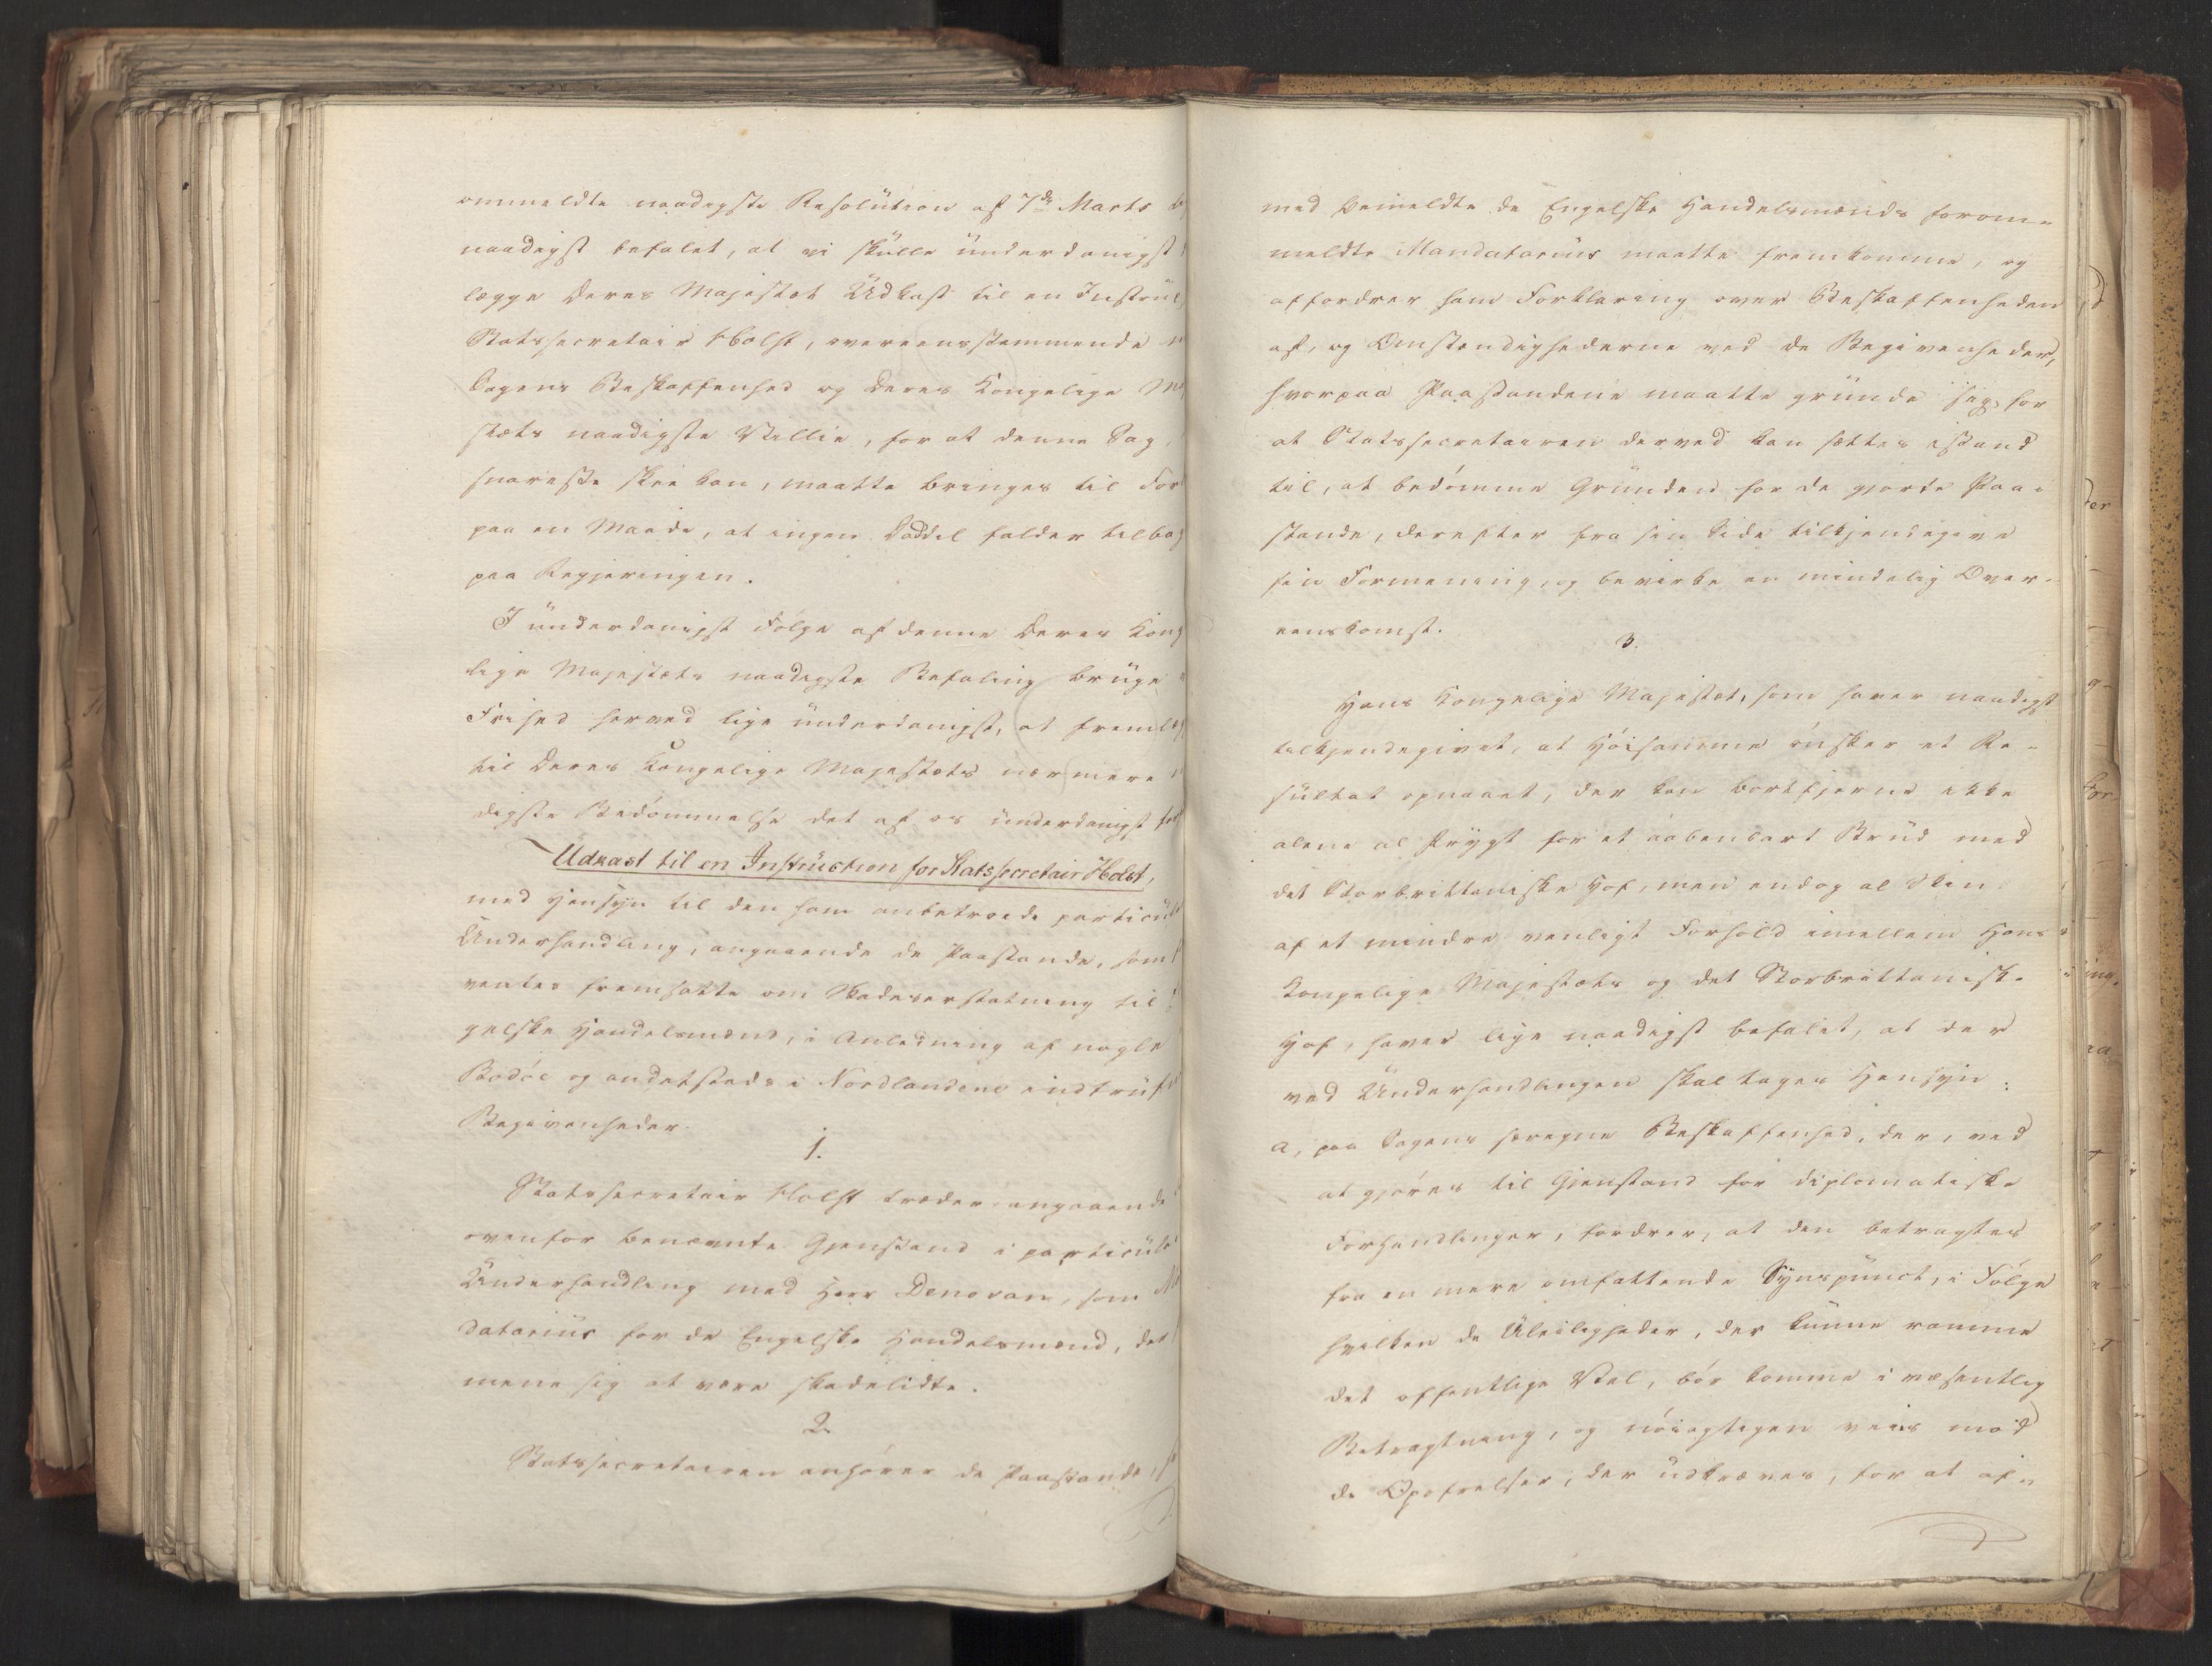 ommeldte naadigste Resolution af 7de Marts
naadigst befalet, at vi skulle underdanigst
lægge Deres Majestæt Udkast til en Instruc
Statssecretair Holst, overeensstemmende
Sagens Beskaffenhed og Deres Kongelige Ma
stæts naadigste Villie, for at denne Sag,
snareste skee kan, maatte bringes til For
paa en Maade, at ingen Daddel falder tilbag
paa Regjeringen.
I underdanigst Følge af denne Deres Kong
lige Majestæts naadigste Befaling bruge
Frihed herved lige underdanigst, at fremlæg
til Deres Kongelige Majestæts nærmere
digste Bedømmelse det af os underdanigst for
Udkast til en Instruction for Statssecretair Holst,
med Hensyn til den ham anbetroede particul
Underhandling, angaaende de Paastande, som
ventes fremsatte om Skadeserstatning til
gelske Handelsmænd, i Anledning af nogle
Bodøe og andetsteds i Nordlandene indtruf
Begivenheder.
1.
Statssecretair Holst træder angaaende
ovenfor benævnte Gjenstand i particulær
Underhandling med Herr Denovan, som Ma
datarius for de Engelske Handelsmænd, der
mene sig at være skadelidte.
2.
Statssecretairen anhører de Paastande,
med bemeldte de Engelske Handelsmænds forom-
meldte Mandatarius maatte fremkomme, og
affordrer ham Forklaring over Beskaffenheden
af, og Omstændighederne ved de Begivenheder,
hvorpaa Paastandene maatte grunde sig, for
at Statssecretairen derved kan sættes istand
til, at bedømme Grunden for de gjorte Paa-
stande, derefter fra sin Side tilkjendegive
sin Formening, og bevirke en mindelig Over-
eenskomst.
3.
Hans Kongelige Majestæt, som haver naadigst
tilkjendegivet, at Høisamme ønsker et Re-
sultat opnaaet, der kan bortfjerne ikke
alene al Frygt for et aabenbart Brud med
det Storbrittaniske Hof, men endog al Skin
af et mindre venligt Forhold imellem Hans
Kongelige Majestæts og det Storbrittaniske
Hof, haver lige naadigst befalet, at der
ved Underhandlingen skal tages Hensyn:
a, paa Sagens særegne Beskaffenhed, der, ved
at gjøres til Gjenstand for diplomatiske
Forhandlinger, fordrer, at den betragtes
fra en mere omfattende Synspunct, i Følge
hvilken de Uleiligheder, der kunne ramme
det offentlige Vel, bør komme i væsentlig
Betragtning, og nøiagtigen veies mod
de Opofrelser, der udkræves, for at af-